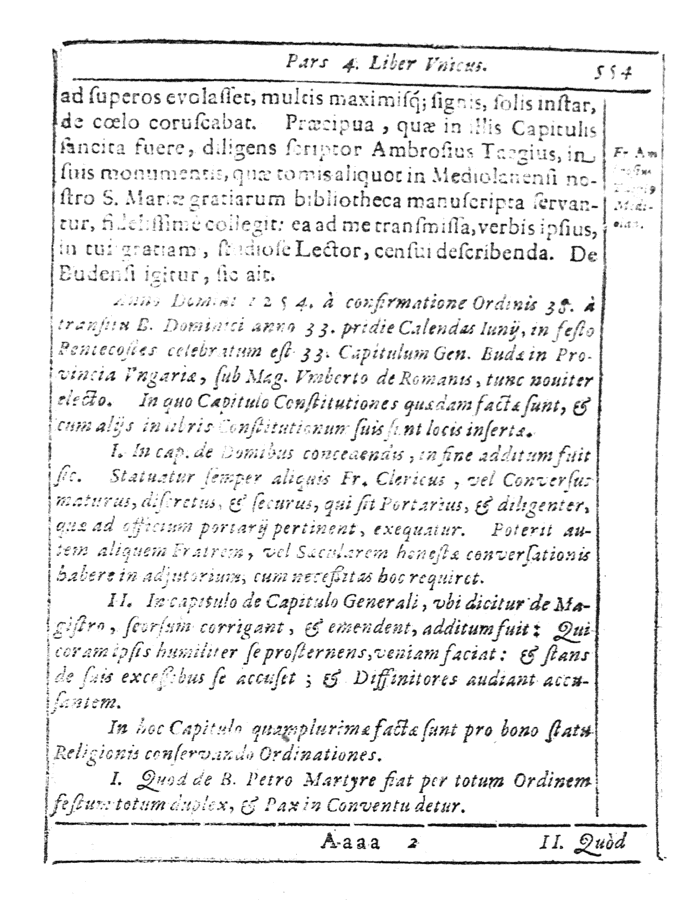 Pars 4. Liber Vnicus.
554
ad ſuperos evolaſſet, multis maximiſq́; ſignis, ſolis inſtar,
de cœlo coruſcabat. Præcipua, quæ in illis Capitulis
ſancita fuere, diligens ſcriptor Ambroſius Taegius, in
ſuis monumentis, quæ tomis aliquot in Mediolanenſi no-
ſtro S. Mariæ gratiarum bibliotheca manuſcripta ſervan-
tur, fideliſſimè collegit: ea ad me tranſmiſſa, verbis ipſius,
in tui gratiam, ſtudioſe Lector, cenſui deſcribenda. De
Budenſi igitur, ſic ait.
Fr. Am
Anno Domini 1254. à confirmatione Ordinis 38. à
tranſitu B. Dominici anno 33. pridie Calendas Iunij, in feſto
Pentecoſtes celebratum eſt 33. Capitulum Gen. Budæ in Pro-
vincia Vngariæ, ſub Mag. Vmberto de Romanis, tunc noviter
electo. In quo Capitulo Conſtitutiones quædam factæ ſunt, &
cum alijs in libris Conſtitutionum ſuis ſunt locis inſertæ.
I. In cap. de Domibus concedendis, in fine additum fuit
ſic. Statuatur ſemper aliquis Fr. Clericus, vel Converſus
maturus, diſcretus, & ſecurus, qui ſit Portarius, & diligenter,
quæ ad officium portarij pertinent, exequatur. Poterit au-
tem aliquem Fratrem, vel Sæcularem honeſtæ converſationis
habere in adjutorium, cum neceſſitas hoc requiret.
II. In capitulo de Capitulo Generali, vbi dicitur de Ma-
giſtro, ſeorſum corrigant, & emendent, additum fuit: Qui
coram ipſis humiliter ſe proſternens, veniam faciat: & ſtans
de ſuis exceſſibus ſe accuſet; & Diffinitores audiant accu-
ſantem.
In hoc Capitulo quamplurimæ factæ ſunt pro bono ſtatu
Religionis conſervando Ordinationes.
I. Quod de B. Petro Martyre fiat per totum Ordinem
feſtum totum duplex, & Pax in Conventu detur.
Aaaa 2
II. Quòd